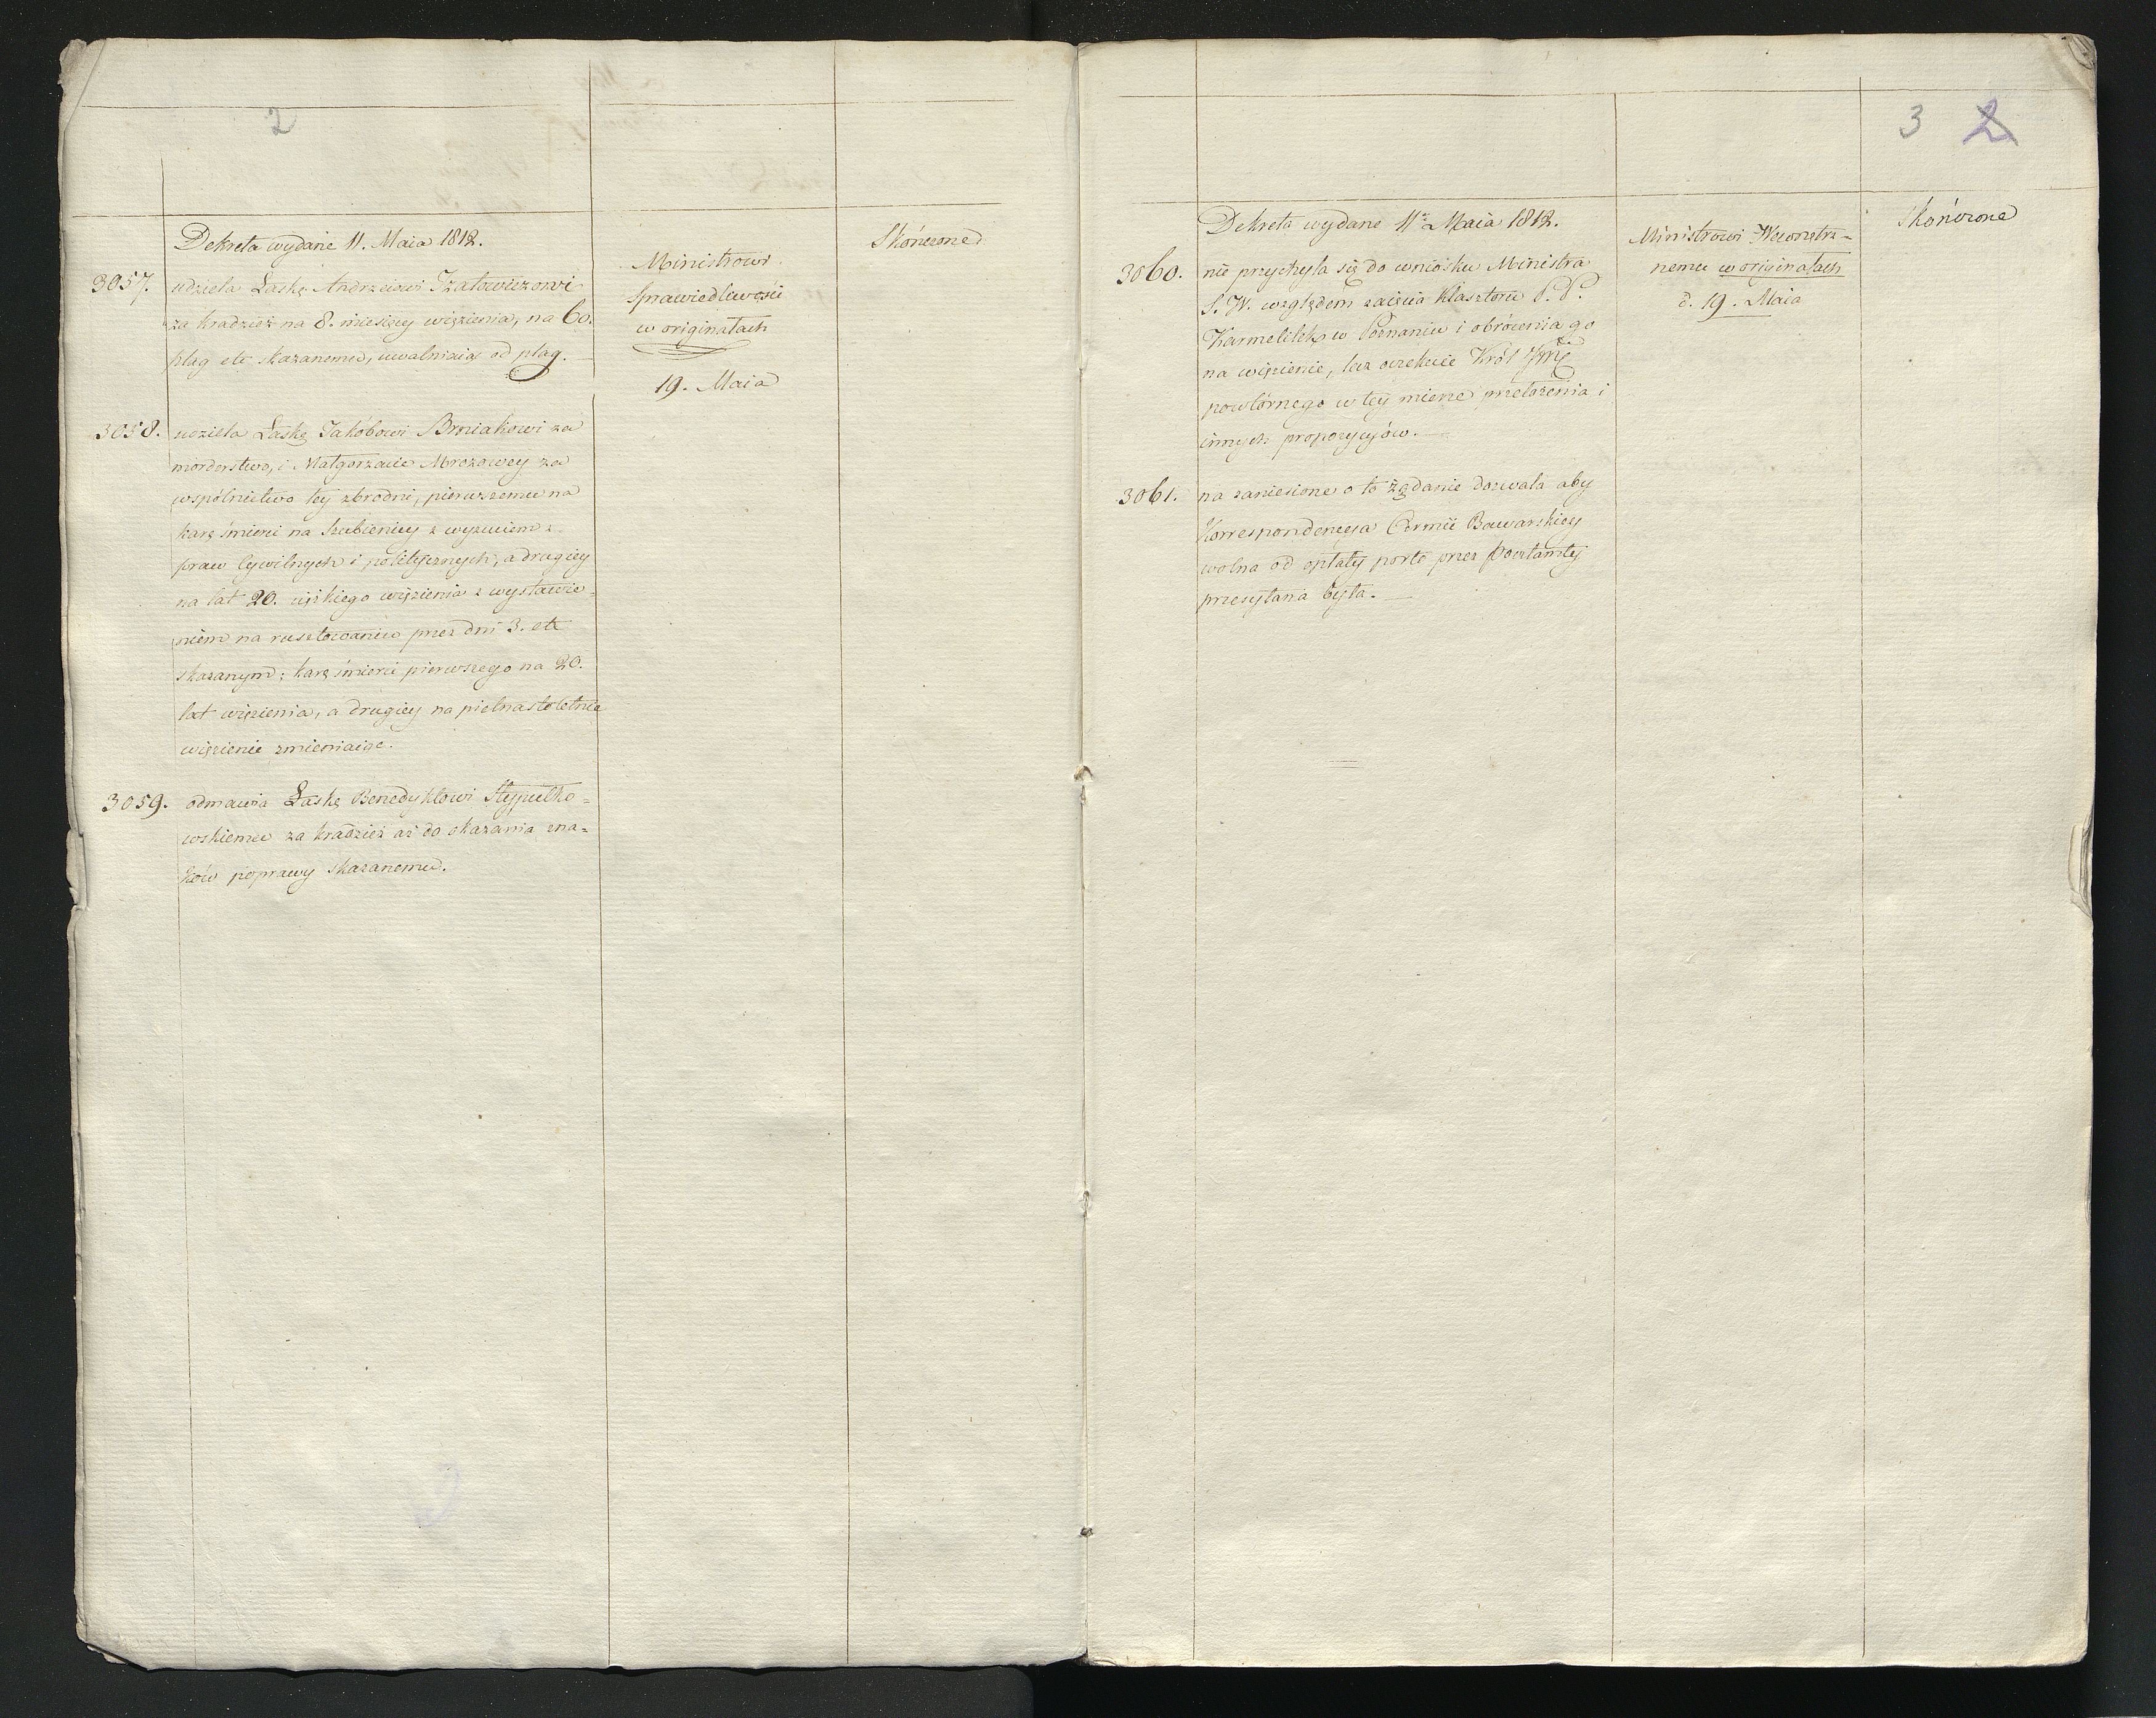 2
Dekreta wydane 11. Maia 1812.
3057. udziela Łaskę Andrzeiowi Izatowiczowi
za kradzież na 8. miesięcy więzienia, na 60.
plag etc skazanemu, uwalniaiąc od plag.
Ministrowi
Sprawiedliwości
w originałach
19. Maia
Skończone
3058. udziela Łaskę Jakóbowi Broniakowi za
morderstwo, i Małgorzacie Mrozowey za
wspólnictwo tey zbrodni, pierwszemu na
karę śmierci na Szubienicy z wyzuciem z
praw Cywilnych i politycznych, a drugiey
na lat 20. ciężkiego więzienia z wystawie=
niem na rusztowaniu przez dni 3. etc
skazanym; karę śmierci pierwszego na 20.
lat więzienia, a drugiey na pietnastoletnie
więzienie zmieniaiąc.
3059. odmawia Łaskę Benedyktowi Stypułko=
wskiemu za kradzież aż do okazania zna=
ków poprawy skazanemu.
3 2
Dekreta wydane 11. Maia 1812.
3060. nie przychyla się do wniosku Ministra
S. W. względem zaięcia Klasztoru P. P.
Karmelitek w Poznaniu i obrócenia go
na więzienie, lecz oczekuie Król Jmć
powtórnego w tey mierze przełożenia i
innych propozycyów.
Ministrowi Wewnętrz=
nemu w originałach
d. 19. Maia
Skończone
3061. na zaniesione o to żądanie dozwala aby
Korrespondencya Armii Bawarskiey
wolna od opłaty porto przez Pocztamty
przesyłana była.